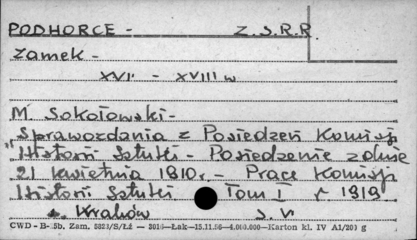 PODHORCE - Z.S.R.R
Zamek -
XVI - XVIII w
M. Sokołowski -
"Sprawozdania z Posiedzeń Komisji
Historii Sztuki - Posiedzenie z dnia
21 kwietnia 1910 r. - Prace Komisji
Historii Sztuki Tom I r 1919
Kraków s. VI
CWD - B- 5b. Zam. 5823/S/Łź — 3010—Łak—15.11.56—4.000.000—Karton kl. IV A1/20) g